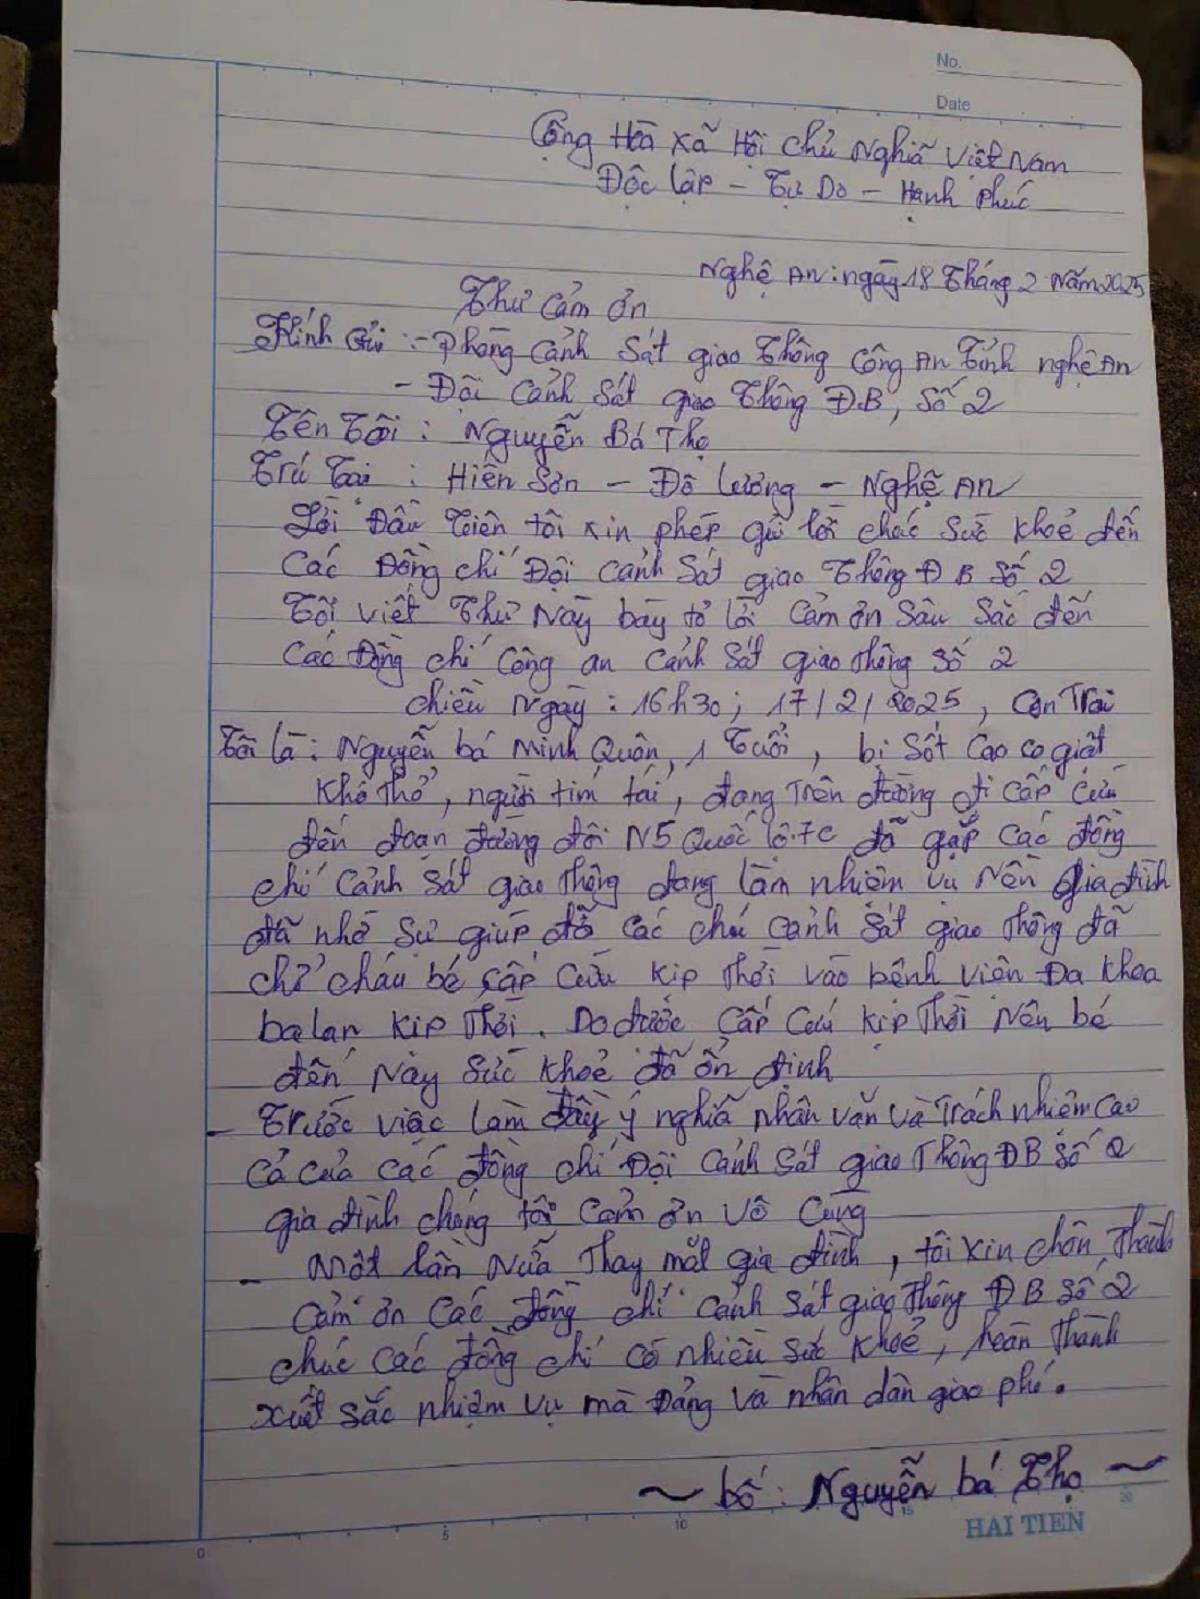 No.
Date
Cộng Hòa xã Hội chủ Nghĩa Việt Nam
Độc lập - Tự Do - Hạnh phúc
Nghệ An: ngày 18 Tháng 2 Năm 2025
Thư cảm ơn
Kính Gửi :- Phòng Cảnh Sát giao Thông Công An Tỉnh nghệ An
- Đội Cảnh Sát giao Thông Đ.B, Số 2
Tên Tôi : Nguyễn Bá Thọ
Trú Tại : Hiến Sơn - Đô Lương - Nghệ An
Lời Đầu Tiên tôi xin phép gửi lời chúc Sức Khoẻ đến
Các Đồng chí Đội Cảnh Sát giao Thông Đ B Số 2
Tôi viết Thư Này bày tỏ lời Cảm ơn Sâu Sắc đến
Các Đồng chí Công an Cảnh Sát giao Thông Số 2
chiều Ngày : 16h30 ; 17/2/2025, Con Trai
Tôi là : Nguyễn bá Minh Quân, 1 Tuổi, bị Sốt Cao co giật
Khó Thở, người tím tái, đang Trên đường đi Cấp Cứu
đến đoạn đường đôi N5 Quốc lộ.7C đã gặp Các đồng
chí Cảnh Sát giao Thông đang làm nhiệm vụ Nên Gia đình
đã nhờ Sự giúp đỡ Các chú Cảnh Sát giao Thông đã
chở cháu bé Cấp Cứu Kịp Thời vào bệnh viện Đa Khoa
ba lan Kịp Thời. Do được Cấp Cứu Kịp Thời Nên bé
đến Này Sức Khoẻ đã ổn định
- Trước việc làm đầy ý nghĩa nhân văn và Trách nhiệm Cao
Cả của Các đồng chí Đội Cảnh Sát giao Thông ĐB Số 2
gia đình chúng tôi Cảm ơn Vô Cùng
- Một lần Nữa Thay mặt gia đình, tôi xin chân Thành
Cảm ơn Các đồng chí Cảnh Sát giao Thông Đ B Số 2
chúc Các đồng chí Có nhiều Sức Khoẻ, hoàn Thành
xuất Sắc nhiệm vụ mà Đảng và nhân dân giao phó.
~ bố : Nguyễn bá Thọ ~
0 5 10 15 20
HẢI TIẾN